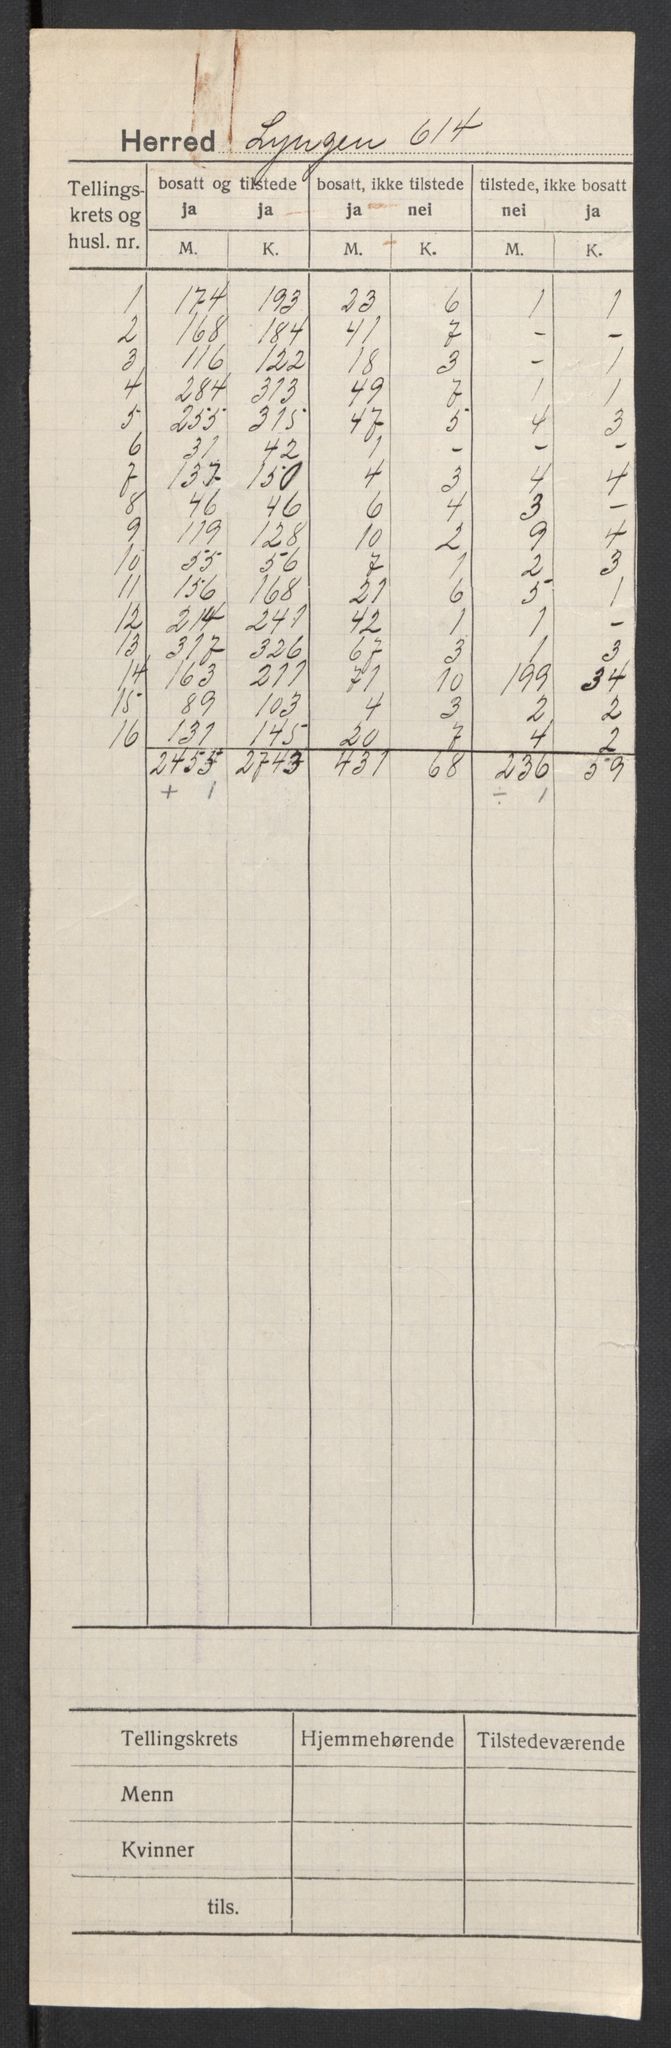 Herred Lyngen 614
Tellings-krets og husl. nr. | bosatt og tilstede | bosatt, ikke tilstede | tilstede, ikke bosatt
ja ja ja nei nei ja
M. K. M. K. M. K.
1 174 193 23 6 1 1
2 168 184 41 7 - -
3 116 122 18 3 - 1
4 284 313 49 7 1 1
5 255 315 47 5 4 3
6 31 42 1 - - -
7 137 150 4 3 4 4
8 46 46 6 4 3 -
9 119 128 10 2 9 4
10 55 56 7 1 2 3
11 156 168 21 6 5 1
12 214 241 42 1 1 -
13 317 326 67 3 1 3
14 163 211 71 10 199 34
15 89 103 4 3 2 2
16 131 145 20 7 4 2
2455 2743 431 68 236 59
+ 1 ÷ 1
Tellingskrets Hjemmehørende Tilstedeværende
Menn
Kvinner
tils.